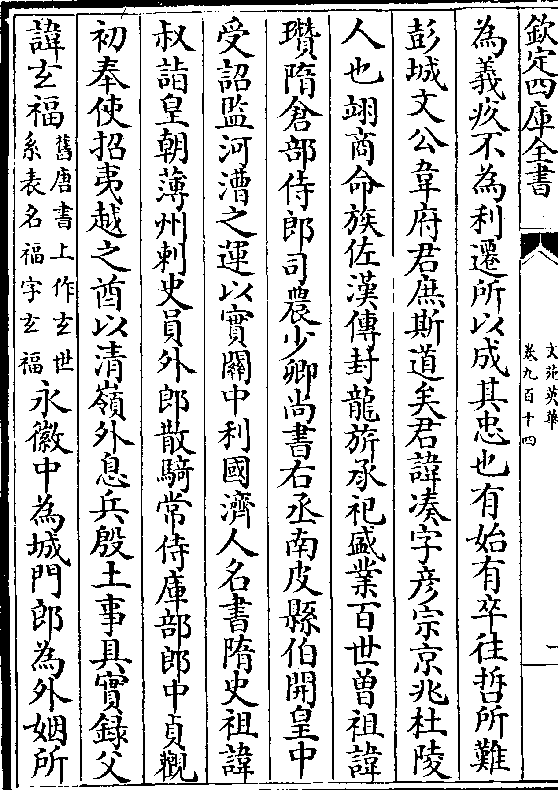 欽定四庫全書
文苑英華
卷九百十四
一
為義疚不為利遷所以成其忠也有始有卒往哲所難
彭城文公韋府君庶斯道矣君諱湊字彦宗京兆杜陵
人也翊商命族佐漢傳封龍旂承祀盛業百世曽祖諱
瓚隋倉部侍郎司農少卿尚書右丞南皮縣伯開皇中
受詔監河漕之運以實關中利國濟人名書隋史祖諱
叔諧皇朝薄州刺史員外郎散騎常侍庫部郎中貞觀
初奉使招夷越之酋以清嶺外息兵殷土事具實録父
諱玄福舊唐書上作玄世系表名福字玄福永徽中為城門郎為外姻所